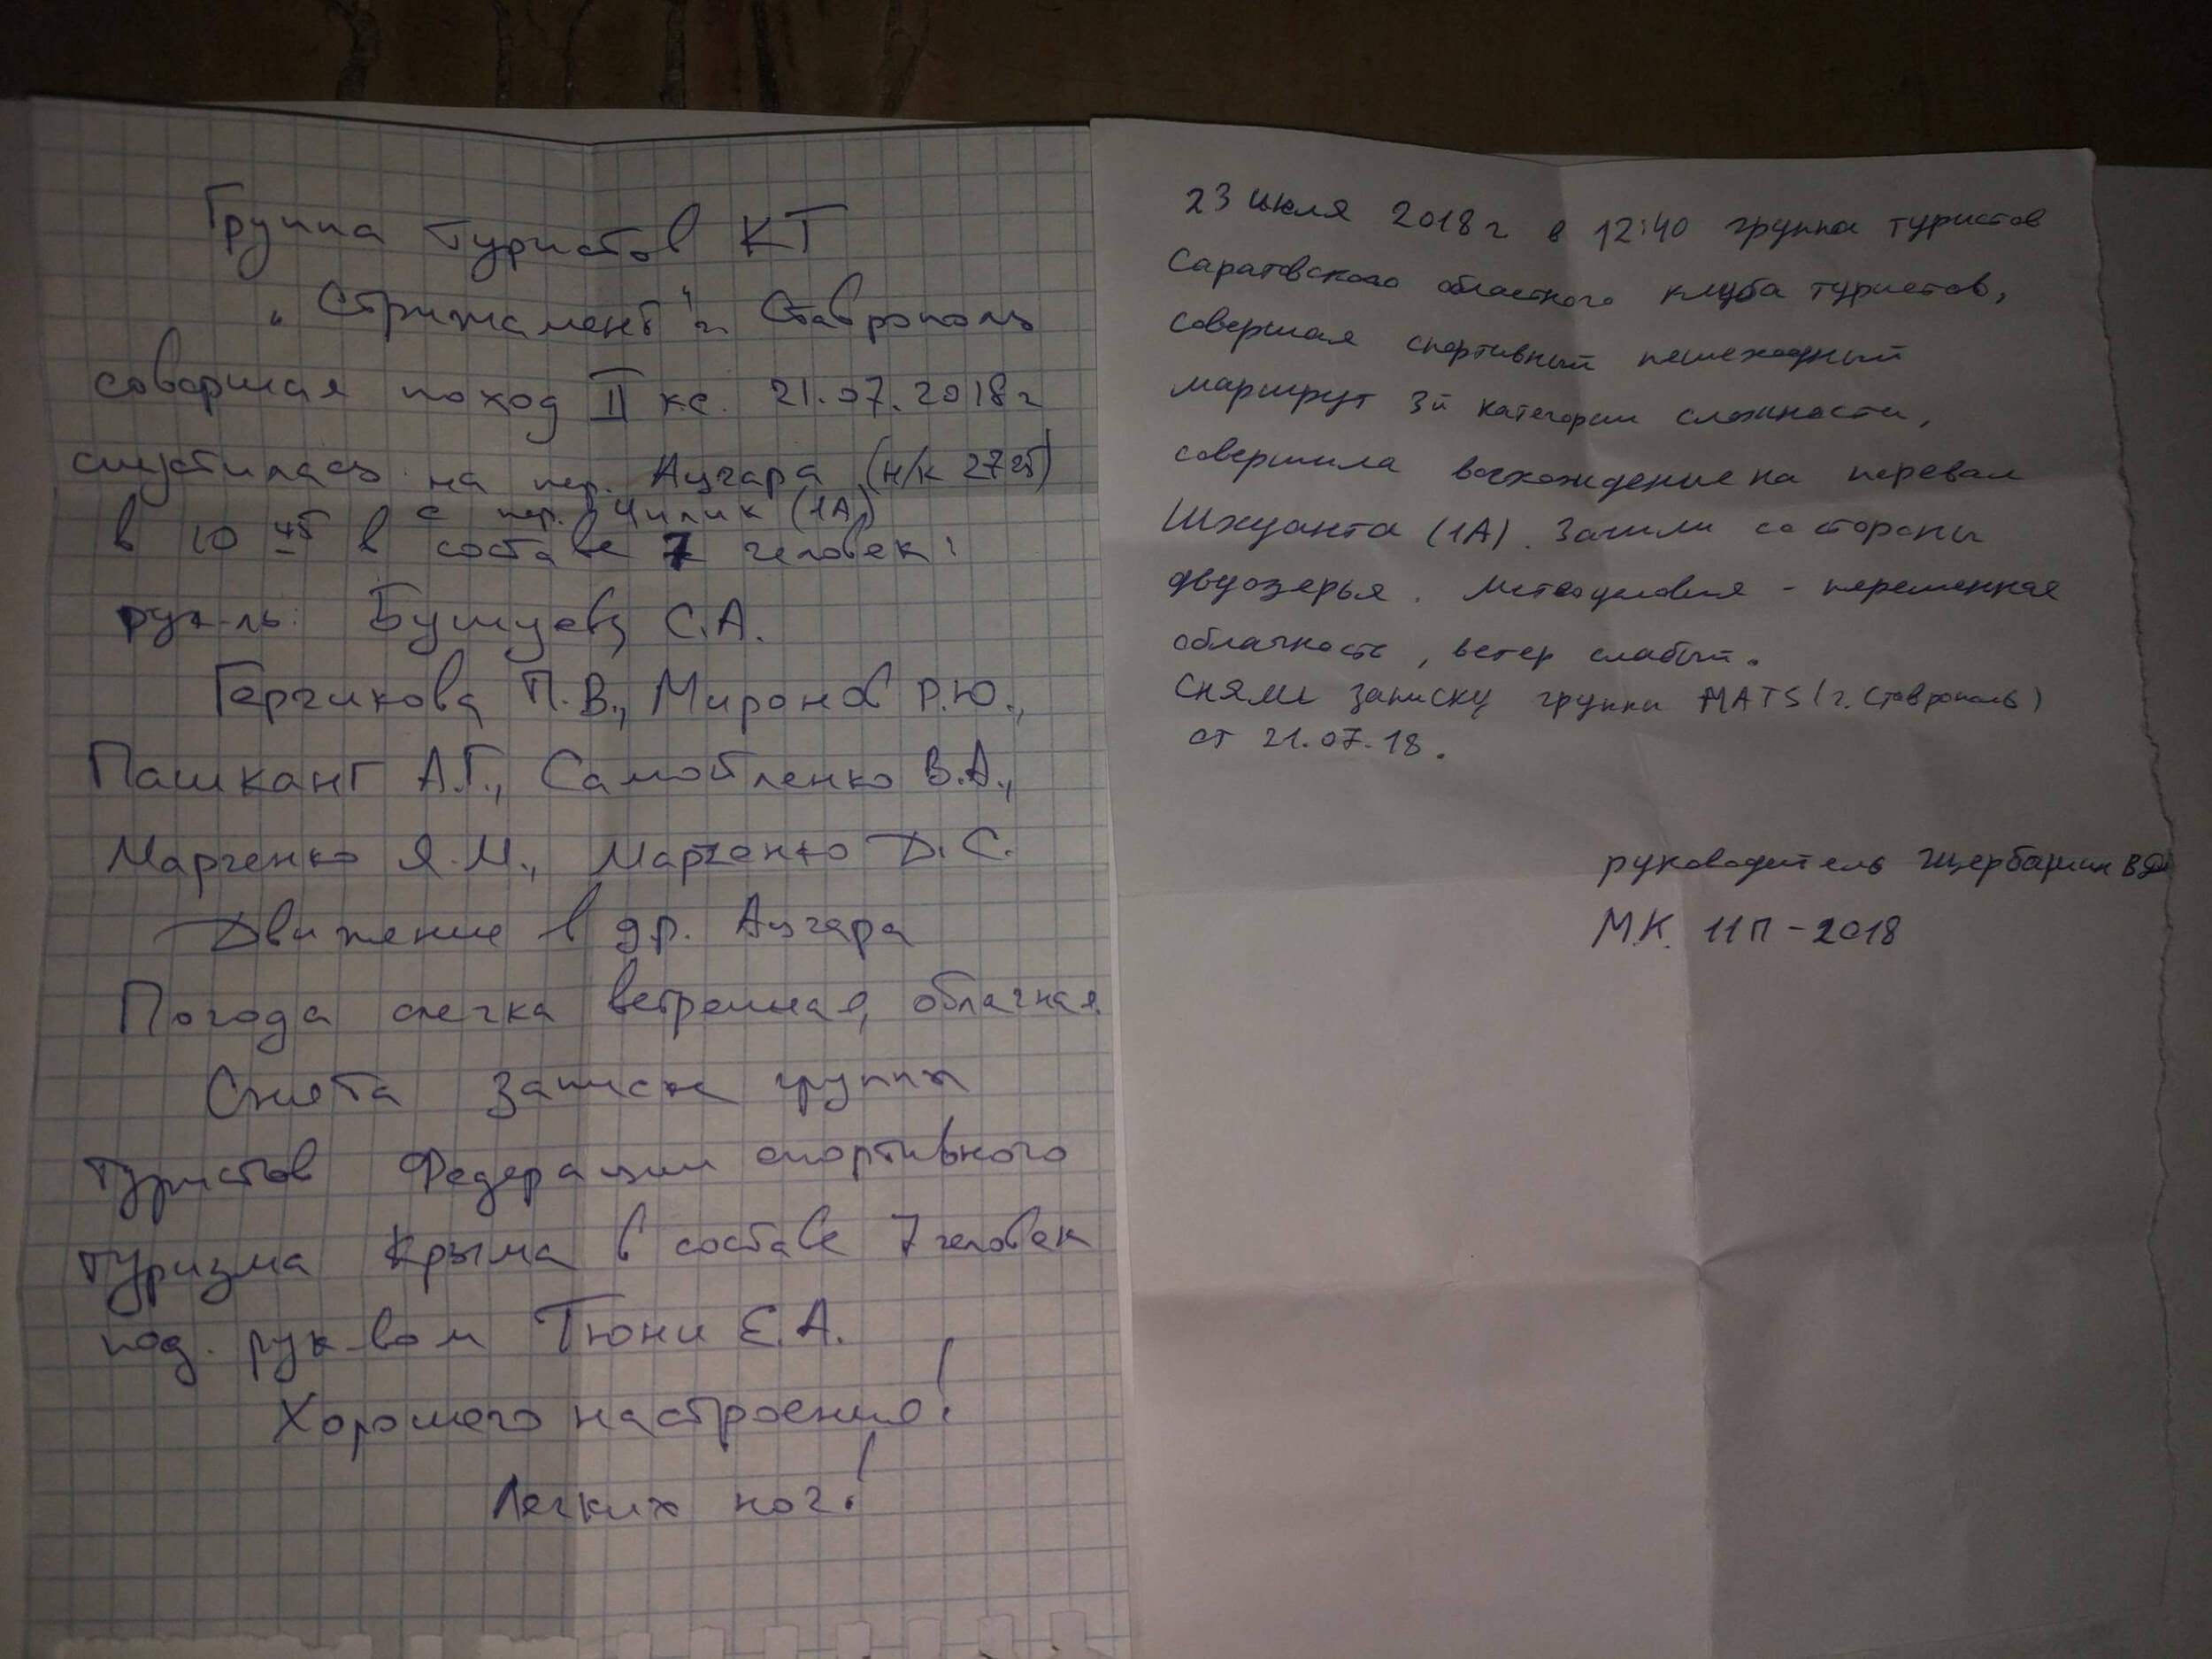 Группа туристов КТ
"Стрижамент" г. Ставрополь
совершая поход II к.с. 21.07.2018г
спустилась на пер. Ацгара (н/к 2725)
с пер. Чилик (1А)
в 10 45 в составе 7 человек:
рук-ль: Бушуев С.А.
Герчикова П.В., Миронов Р.Ю.,
Пашкант А.Г., Самойленко В.А.,
Марченко Я.М., Марченко Д.С.
Движение в др. Ацгара
Погода слегка ветренная, облачная.
Снята записк группы
туристов Федерации спортивного
туризма Крыма в составе 7 человек
под. рук-вом Тюни Е.А.
Хорошего настроения!
Легких ног!
23 июля 2018 г в 12:40 группа туристов
Саратовского областного клуба туристов,
совершая спортивный пешеходный
маршрут 3й категории сложности,
совершила восхождение на перевал
Шхуанта (1А). Зашли со стороны
двуозерья. Метеоусловия - переменная
облачность, ветер слабый.
Сняли записку группы MATS (г. Ставрополь)
от 21.07.18.
руководитель Щербашин
М.К. 11П-2018